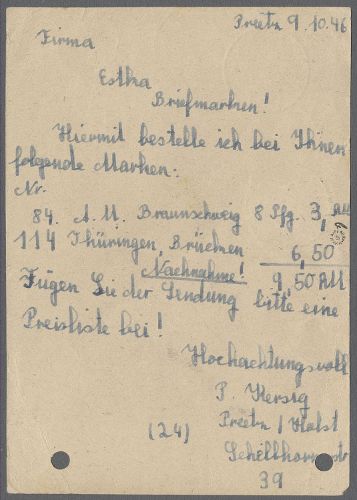 Preetz 9.10.46
Firma
Estha
Briefmarken!
Hiermit bestelle ich bei Ihnen
folgende Marken:
Nr.
84. A.M. Braunschweig 8 Pfg. 3,
114 Thüringen, Brücken 6,50
Nachnahme! 9,50
Fügen Sie der Sendung bitte eine
Preisliste bei!
Hochachtungsvoll
P. Kersig
Preetz / Holst
(24) Schellhornerstr
39